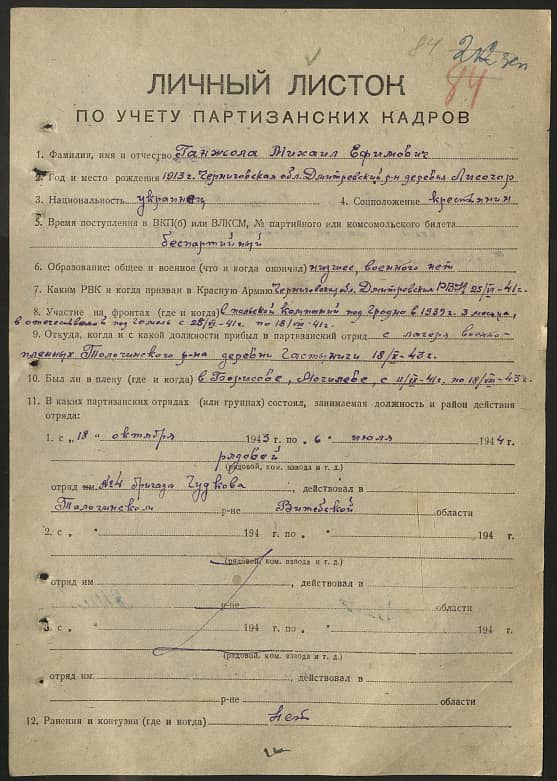 84
84
ЛИЧНЫЙ ЛИСТОК
ПО УЧЕТУ ПАРТИЗАНСКИХ КАДРОВ
1. Фамилия, имя и отчество Ганжола Михаил Ефимович
2. Год и место рождения 1913 г. Черниговская обл. Дмитревский р-н деревня Лисогор
3. Национальность украинец 4. Соцположение крестьянин
5. Время поступления в ВКП(б) или ВЛКСМ, № партийного или комсомольского билета
беспартийный
6. Образование: общее и военное (что и когда окончил) низшее, военного нет
7. Каким РВК и когда призван в Красную Армию Черниговск. обл. Дмитревским РВК 25/VI-41 г.
8. Участие на фронтах (где и когда) в польской компаний под Гродно в 1939 г. 3 месяца,
в отечественой под Гомель с 25/VI-41 г. по 18/VIII-41 г.
9. Откуда, когда и с какой должности прибыл в партизанский отряд с лагеря военно-
пленных Толочинского р-на деревни 18/X-43 г.
10. Был ли в плену (где и когда) в Борисове, Могилеве, с по 18/VIII-43 г.
11. В каких партизанских отрядах (или группах) состоял, занимаемая должность и район действия
отряда:
1. с „18" октября 1943 г. по „6" июля 1944 г.
рядовой
(рядовой, ком. взвода и т. д.)
отряд им. №4 бригада Чудкова, действовал в
Толочинском р-не Витебской области
2. с „ " 194 г. по „ " 194 г.
(рядовой, ком. взвода и т. д.)
отряд им , действовал в
р-не области
3. с „ " 194 г. по „ " 194 г.
(рядовой, ком. взвода и т. д.)
отряд им. , действовал в
р-не области
12. Ранения и контузии (где и когда) нет